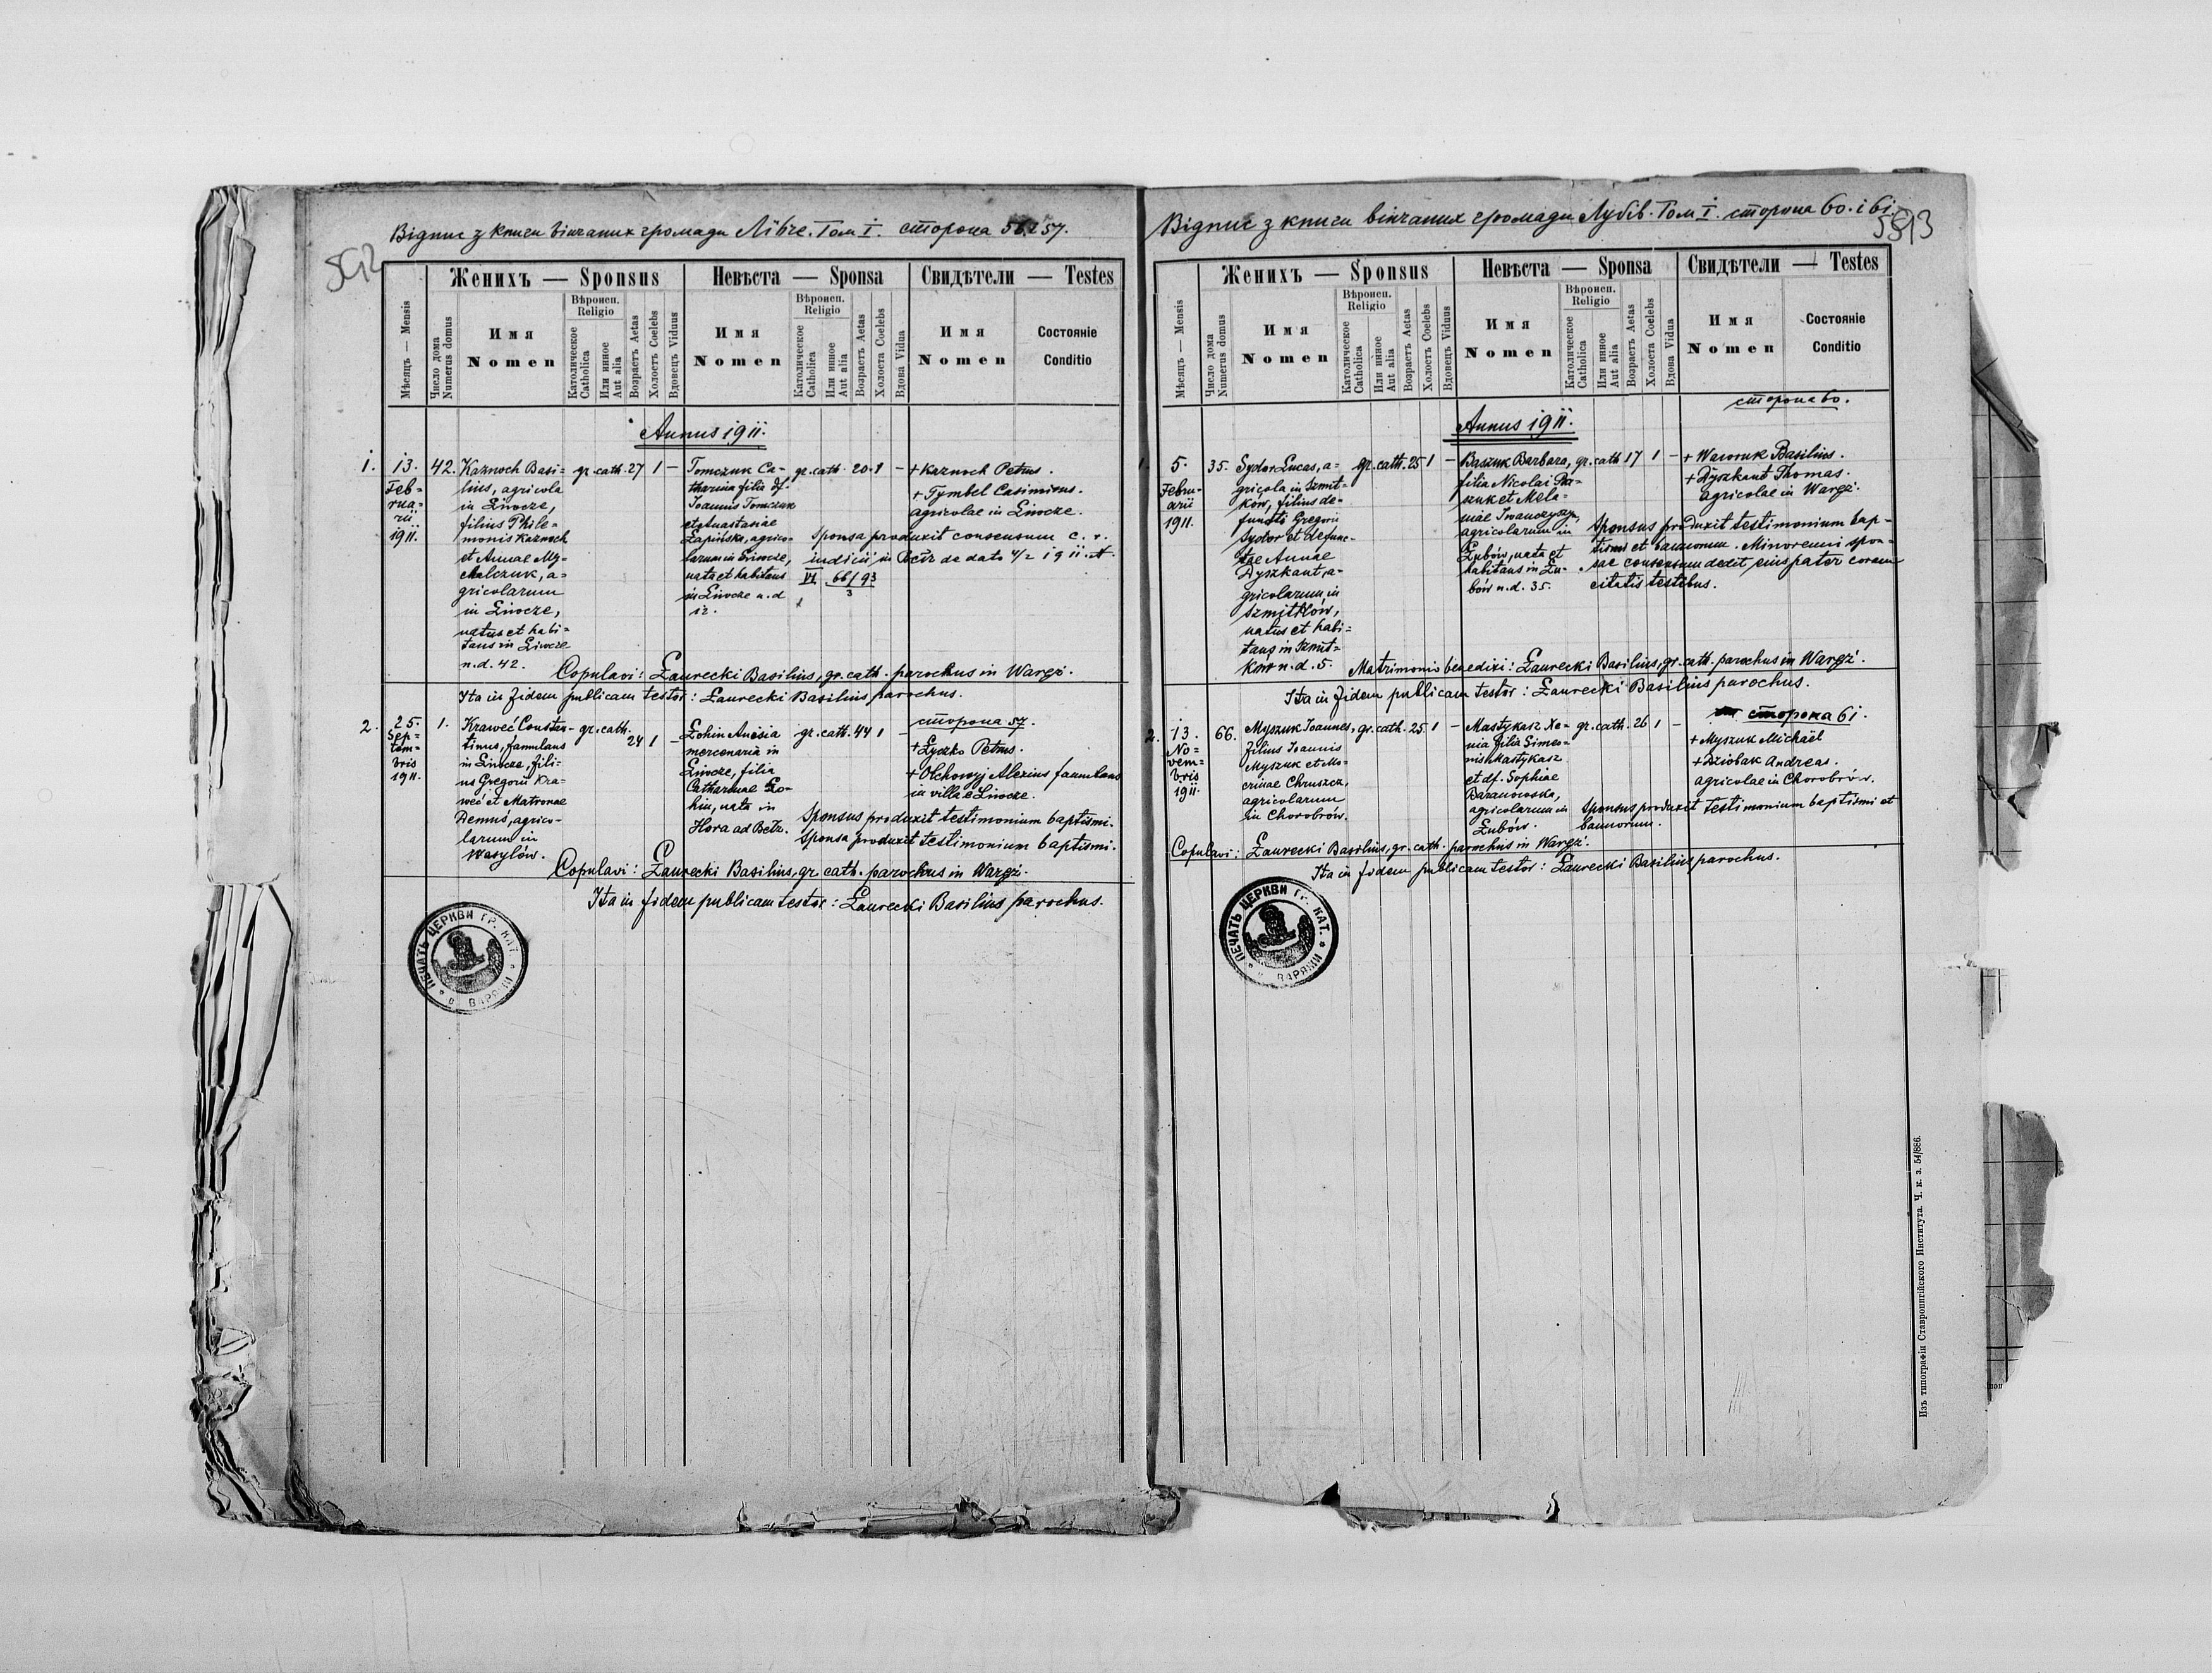 Відпис з книги вінчаних громади Лівче. Том I. сторона 56 i 57.
Женихъ — Sponsus
Невѣста — Sponsa
Свидѣтели — Testes
Мѣсяцъ — Mensis
Число дома
Numerus domus
Имя
Nomen
Вѣроисп.
Religio
Католическое
Catholica
Или инное
Aut alia
Возрастъ Aetas
Холостъ Coelebs
Вдовецъ Viduus
Имя
Nomen
Вѣроисп.
Religio
Католическое
Catholica
Или инное
Aut alia
Возрастъ Aetas
Холоста Coelebs
Вдова Vidua
Имя
Nomen
Состояніе
Conditio
Annus 1911.
1.
13.
Feb=
rua=
rii
1911.
42.
Kaznoch Basi=
lius, agricola
in Liwcze,
filius Phile=
monis Kaznoch
et Annae My=
chalczuk, a=
gricolarum
in Liwcze,
natus et habi=
tans in Liwcze
n.d. 42.
gr. cath. 27 1 —
Tomczuk Ca=
tharina filia df.
Joannis Tomczuk
et Anastasiae
Łapińska, agrico=
larum in Liwcze,
nata et habitans
in Liwcze n.d
12.
gr. cath. 20 1 —
+ Kaznoch Petrus.
+ Tymbel Casimirus.
agricolae in Liwcze.
Sponsa produxit consensum c. r.
iudicii in Bełz de dato 4/2 1911. N.
VI 66/93
3
Copulavi: Ławrecki Basilius, gr. cath. parochus in Waręż.
Ita in fidem publicam testor: Ławrecki Basilius parochus.
2.
25.
Sep=
tem=
bris
1911.
1.
Kraweć Constan=
tinus, famulans
in Liwcze, fili=
us Gregorii Kra=
weć et Matronae
Demus, agrico=
larum in
Wasylów.
gr. cath.
24 1 —
Łohin Anisia
mercenaria in
Liwcze, filia
Catharinae Ło=
hin, nata in
Hora ad Bełz.
gr. cath. 44 1 —
сторона 57.
+ Łyczko Petrus.
+ Olchowyj Alexius famulans
in villa Liwcze.
Sponsus produxit testimonium baptismi.
Sponsa produxit testimonium baptismi.
Copulavi: Ławrecki Basilius, gr cath. parochus in Waręż.
Ita in fidem publicam testor: Ławrecki Basilius parochus.
ПЕЧАТЬ ЦЕРКВИ ГР. КАТ. * в ВАРЯЖИ *
Відпис з книги вінчаних громади Лубів. Том I. сторона 60. i 61.
Женихъ — Sponsus
Невѣста — Sponsa
Свидѣтели — Testes
Мѣсяцъ — Mensis
Число дома
Numerus domus
Имя
Nomen
Вѣроисп.
Religio
Католическое
Catholica
Или инное
Aut alia
Возрастъ Aetas
Холостъ Coelebs
Вдовецъ Viduus
Имя
Nomen
Вѣроисп.
Religio
Католическое
Catholica
Или инное
Aut alia
Возрастъ Aetas
Холоста Coelebs
Вдова Vidua
Имя
Nomen
Состояніе
Conditio
сторона 60.
Annus 1911.
1.
5.
Febru=
arii
1911.
35.
Sydor Lucas, a=
gricola in Szmit=
ków, filius de=
functi Gregorii
Sydor et defunc=
tae Annae
Dyszkant, a=
gricolarum in
Szmitków,
natus et habi=
tans in Szmit=
ków n.d. 5.
gr. cath. 25 1 —
Baszuk Barbara,
filia Nicolai Ba=
szuk et Mela=
niae Iwanczyszyn,
agricolarum in
Łubów, nata et
habitans in Łu=
bów n.d. 35.
gr. cath 17 1 —
+ Waworuk Basilius.
+ Dyszkant Thomas.
agricolae in Waręż.
Sponsus produxit testimonium bap=
tismi et bannorum. Minorenni spon=
sae consensum dedit eius pater coram
citatis testibus.
Matrimonio benedixi: Ławrecki Basilius, gr. cath. parochus in Waręż.
Ita in fidem publicam testor: Ławrecki Basilius parochus.
сторона 61.
2.
13.
No=
vem=
bris
1911.
66.
Myszuk Joannes,
filius Joannis
Myszuk et Ma=
crinae Chruszcz,
agricolarum
in Chorobrów.
gr. cath. 25 1 —
Mastykasz Xe=
nia filia Simeo=
nis Mastykasz
et df. Sophiae
Baranowska,
agricolarum in
Łubów.
gr. cath. 26 1 —
+ Myszuk Michaël
+ Dziobak Andreas.
agricolae in Chorobrów.
Sponsus produxit testimonium baptismi et
bannorum.
Copulavi: Ławrecki Basilius, gr. cath. parochus in Waręż.
Ita in fidem publicam testor: Ławrecki Basilius parochus.
ПЕЧАТЬ ЦЕРКВИ ГР. КАТ. * в ВАРЯЖИ *
Изъ типографіи Ставропигійского Института. Ч. к. з. 54/886.